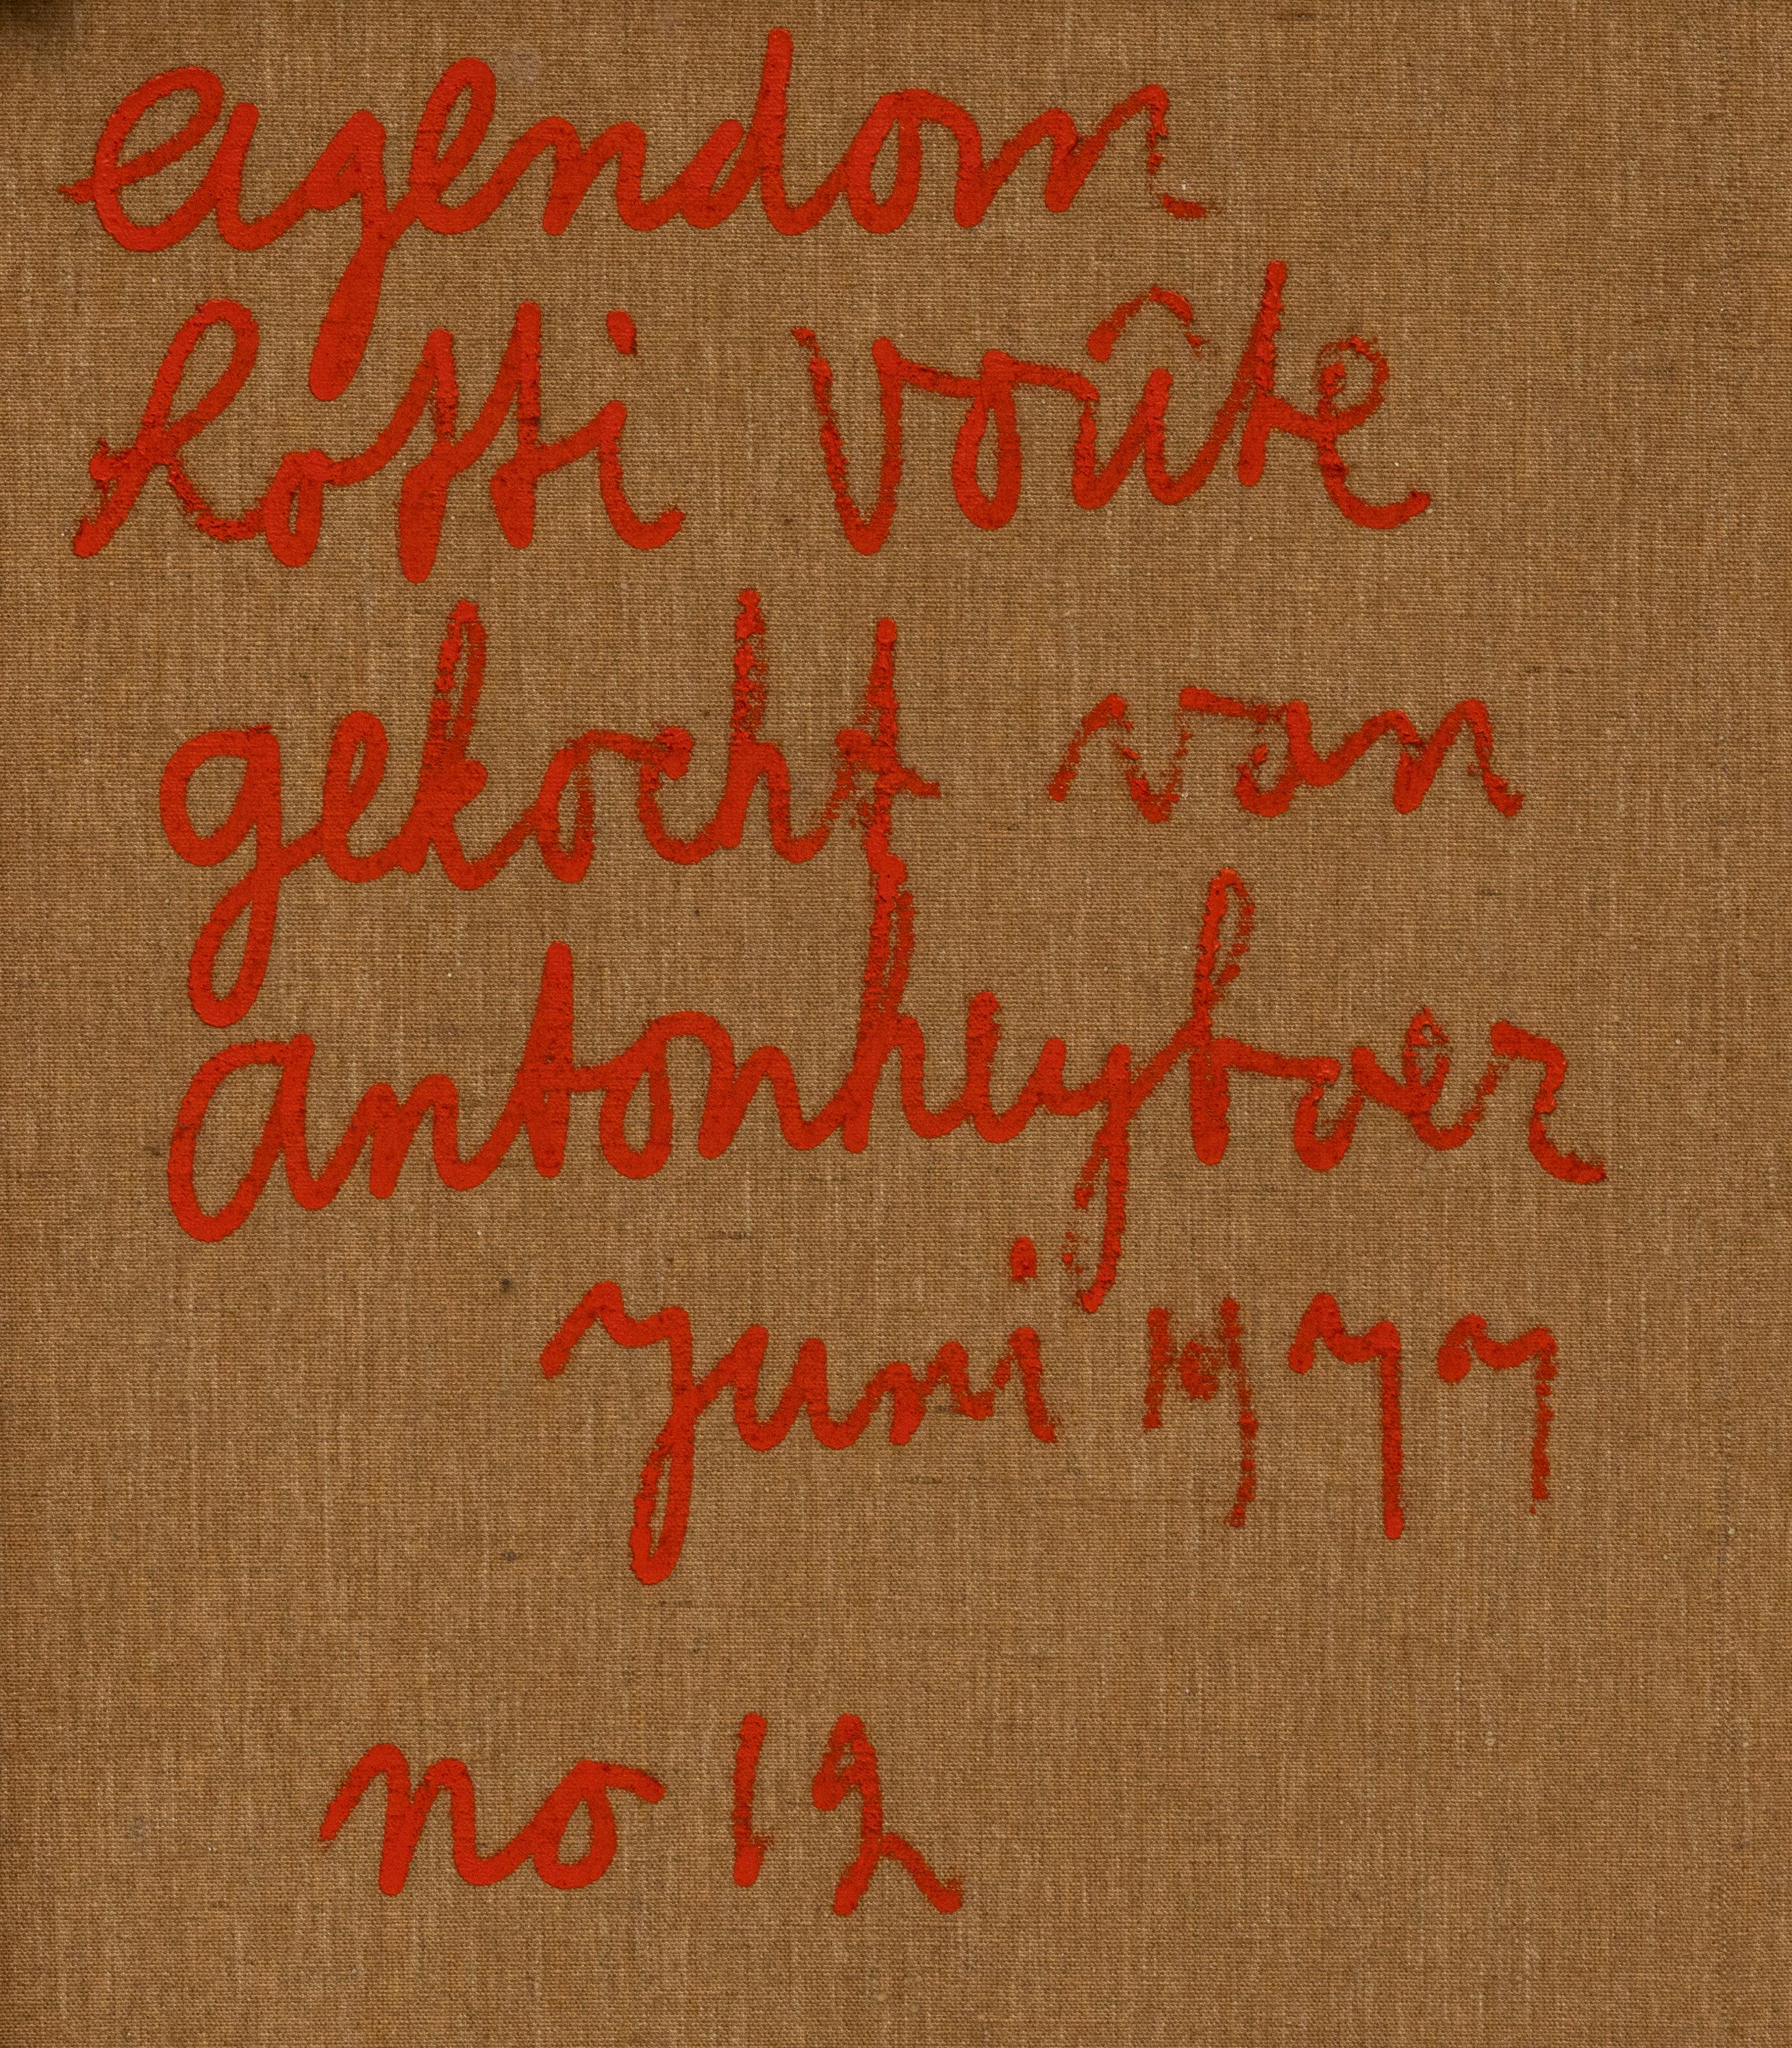 eigendom
Rossi Voûte
gekocht van
antonheyboer
juni 1977
no 12